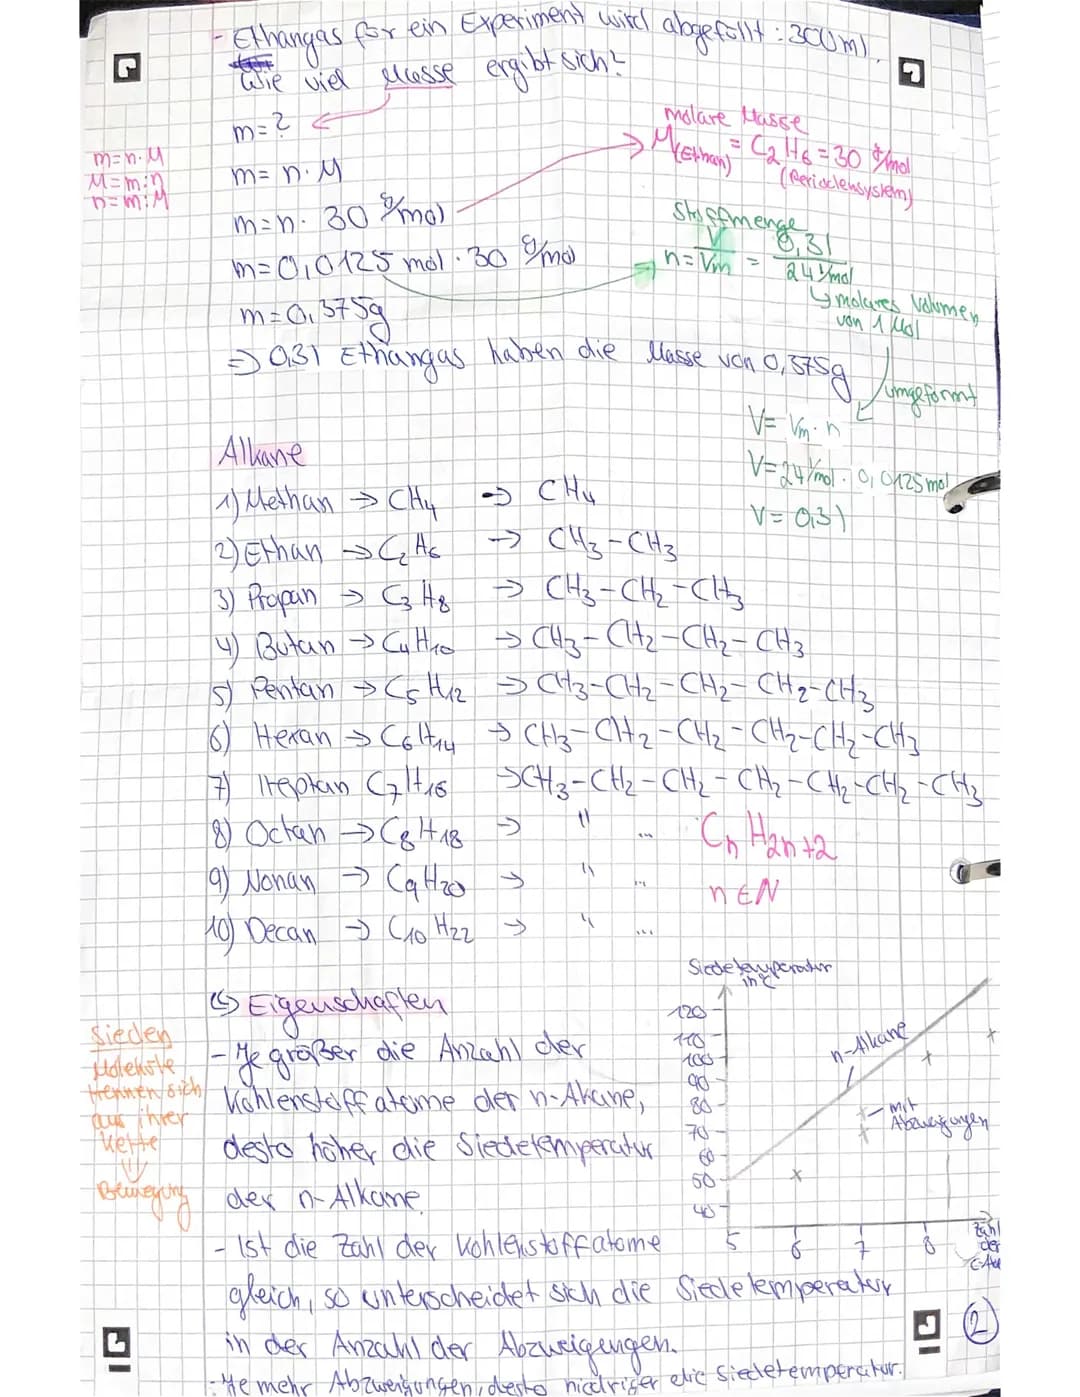 - Ethangas für ein Experiment wird abgefüllt: 300ml.
Wie viel Masse ergibt sich?
m=?
m=n·M
M=m:n
n=m:M
m=n·M
m=n·30 g/mol
m=0,0125 mol·30 g/mol
m=0,375g
=> 0,3l Ethangas haben die Masse von 0,375g
molare Masse
M(Ethan) = C2H6 = 30 g/mol
(Periodensystem)
Stoffmenge
n = V/Vm = 0,3l / 24 l/mol
↳ molares Volumen
von 1 Mol
umgeformt
V= Vm·n
V=24 l/mol · 0,0125 mol
V= 0,3l
Alkane
1) Methan → CH4 → CH4
2) Ethan → C2H6 → CH3-CH3
3) Propan → C3H8 → CH3-CH2-CH3
4) Butan → C4H10 → CH3-CH2-CH2-CH3
5) Pentan → C5H12 → CH3-CH2-CH2-CH2-CH3
6) Hexan → C6H14 → CH3-CH2-CH2-CH2-CH2-CH3
7) Heptan C7H16 → CH3-CH2-CH2-CH2-CH2-CH2-CH3
8) Octan → C8H18 → " ...
9) Nonan → C9H20 → " ...
10) Decan → C10H22 → " ...
CnH2n+2
n∈N
↳ Eigenschaften
- Je größer die Anzahl der
Kohlenstoffatome der n-Alkane,
desto höher die Siedetemperatur
der n-Alkane.
- Ist die Zahl der Kohlenstoffatome
gleich, so unterscheidet sich die Siedetemperatur
in der Anzahl der Abzweigungen.
- Je mehr Abzweigungen, desto niedriger die Siedetemperatur.
Sieden
Moleküle
trennen sich
aus ihrer
Kette
⇓
Bewegung
Siedetemperatur
in °C
120
110
100
90
80
70
60
50
40
5 6 7 8
n-Alkane
mit
Abzweigungen
Zahl
der
C-Au
2